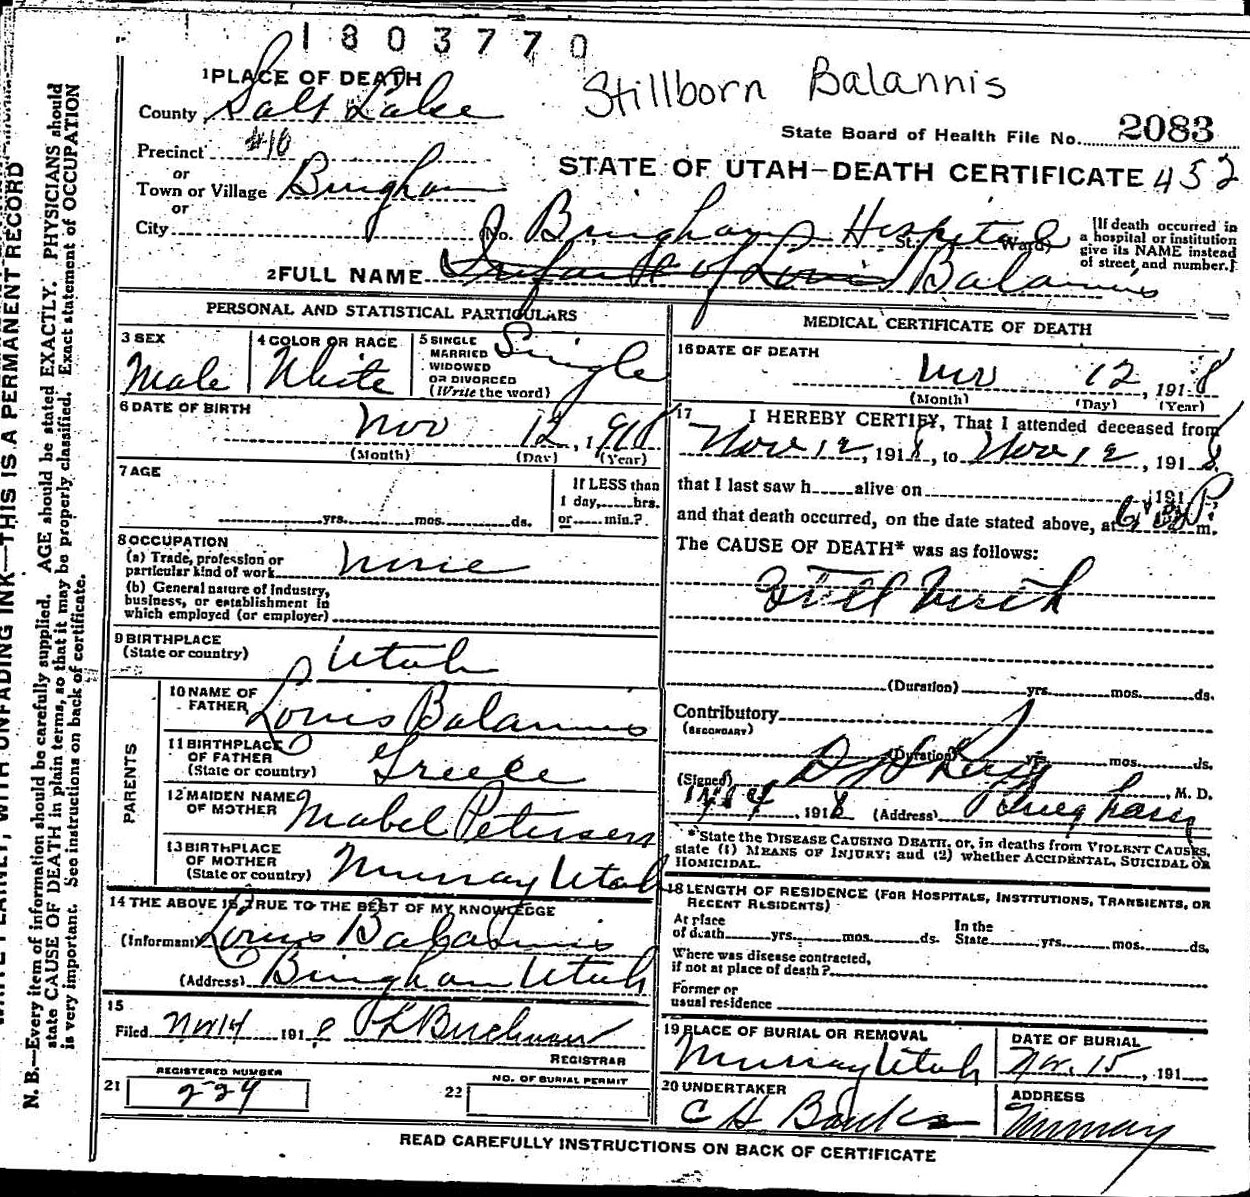 1803770
Stillborn Balannis
1 PLACE OF DEATH
County Salt Lake
State Board of Health File No. 2083
Precinct #10
or
STATE OF UTAH—DEATH CERTIFICATE 452
Town or Village Bingham
or
City No. Bingham Hospital St. Ward)
[If death occurred in
a hospital or institution
give its NAME instead
of street and number.]
2 FULL NAME Infant of Louis Balannis
PERSONAL AND STATISTICAL PARTICULARS
3 SEX
Male
4 COLOR OR RACE
White
5 SINGLE
MARRIED
WIDOWED
OR DIVORCED
(Write the word)
Single
6 DATE OF BIRTH
Nov 12, 1918
(Month) (Day) (Year)
7 AGE
yrs. mos. ds.
If LESS than
1 day, hrs.
or min.?
8 OCCUPATION
(a) Trade, profession or
particular kind of work None
(b) General nature of Industry,
business, or establishment in
which employed (or employer)
9 BIRTHPLACE
(State or country) Utah
PARENTS
10 NAME OF
FATHER Louis Balannis
11 BIRTHPLACE
OF FATHER
(State or country) Greece
12 MAIDEN NAME
OF MOTHER Mabel Petersen
13 BIRTHPLACE
OF MOTHER
(State or country) Murray Utah
14 THE ABOVE IS TRUE TO THE BEST OF MY KNOWLEDGE
(Informant) Louis Balannis
(Address) Bingham Utah
15
Filed Nov 14 191
REGISTRAR
REGISTERED NUMBER
21 224
NO. OF BURIAL PERMIT
22
MEDICAL CERTIFICATE OF DEATH
16 DATE OF DEATH
Nov 12, 1918
(Month) (Day) (Year)
17 I HEREBY CERTIFY, That I attended deceased from
Nov 12, 1918, to Nov 12, 1918.
that I last saw h alive on 191
and that death occurred, on the date stated above, at P m.
The CAUSE OF DEATH* was as follows:
Still birth
(Duration) yrs. mos. ds.
Contributory
(SECONDARY)
(Duration) yrs. mos. ds.
(Signed) M. D.
1918 (Address) Bingham
*State the DISEASE CAUSING DEATH, or, in deaths from VIOLENT CAUSES,
state (1) MEANS OF INJURY; and (2) whether ACCIDENTAL, SUICIDAL OR
HOMICIDAL.
18 LENGTH OF RESIDENCE (FOR HOSPITALS, INSTITUTIONS, TRANSIENTS, OR
RECENT RESIDENTS)
At place
of death yrs. mos. ds.
In the
State yrs. mos. ds.
Where was disease contracted,
if not at place of death?
Former or
usual residence
19 PLACE OF BURIAL OR REMOVAL
Murray Utah
DATE OF BURIAL
Nov. 15, 191
20 UNDERTAKER
ADDRESS
Murray
READ CAREFULLY INSTRUCTIONS ON BACK OF CERTIFICATE
WITH UNFADING INK—THIS IS A PERMANENT RECORD
N. B.—Every item of information should be carefully supplied. AGE should be stated EXACTLY. PHYSICIANS should
state CAUSE OF DEATH in plain terms, so that it may be properly classified. Exact statement of OCCUPATION
is very important. See instructions on back of certificate.